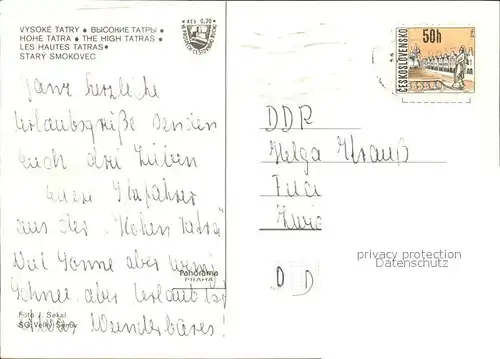 VYSOKÉ TATRY • ВЫСОКИЕ ТАТРЫ •
HOHE TATRA • THE HIGH TATRAS •
LES HAUTES TATRAS •
STARÝ SMOKOVEC
Kčs 0,20
ČESKOSLOVENSKO
50h
Ganz herzliche
Urlaubsgrüße senden
Euch
Eure
aus der "Hohen Tatra"
Viel Sonne aber wenig
Schnee, aber Urlaub ist
etwas Wunderbares!
Panorama
PRAHA
Foto J. Sekal
DDR
Helga Krauß
D D
privacy protection
Datenschutz